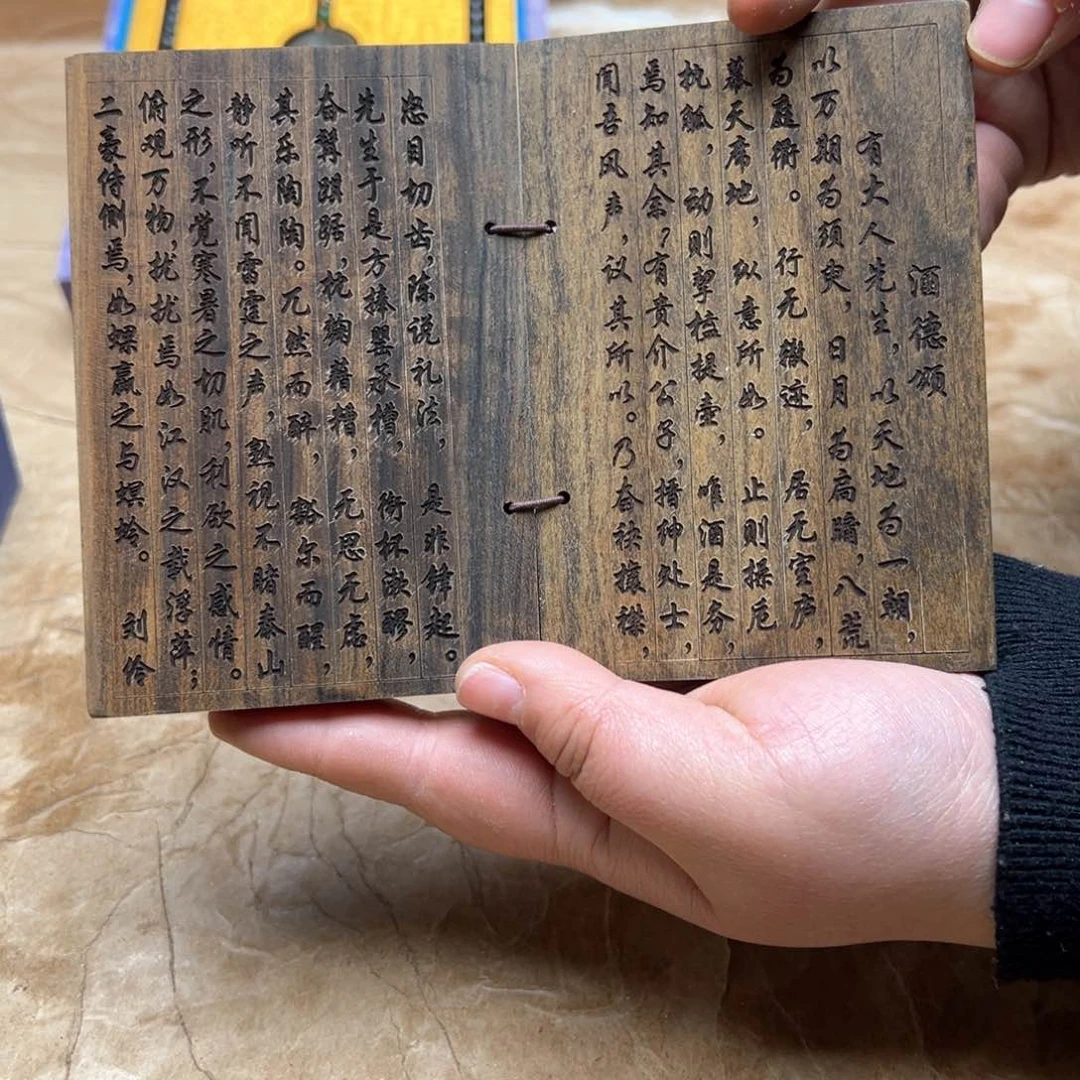 酒德颂
有大人先生，以天地为一朝，
以万期为须臾，日月为扃牖，八荒
为庭衢。行无辙迹，居无室庐，
幕天席地，纵意所如。止则操卮
执觚，动则挈榼提壶，唯酒是务，
焉知其余？有贵介公子，搢绅处士，
闻吾风声，议其所以。乃奋袂攘襟，
怒目切齿，陈说礼法，是非锋起。
先生于是方捧罂承槽，衔杯漱醪，
奋髯踑踞，枕麹藉糟，无思无虑，
其乐陶陶。兀然而醉，豁尔而醒，
静听不闻雷霆之声，熟视不睹泰山
之形，不觉寒暑之切肌，利欲之感情。
俯观万物，扰扰焉如江汉之载浮萍；
二豪侍侧焉，如蜾蠃之与螟蛉。刘伶